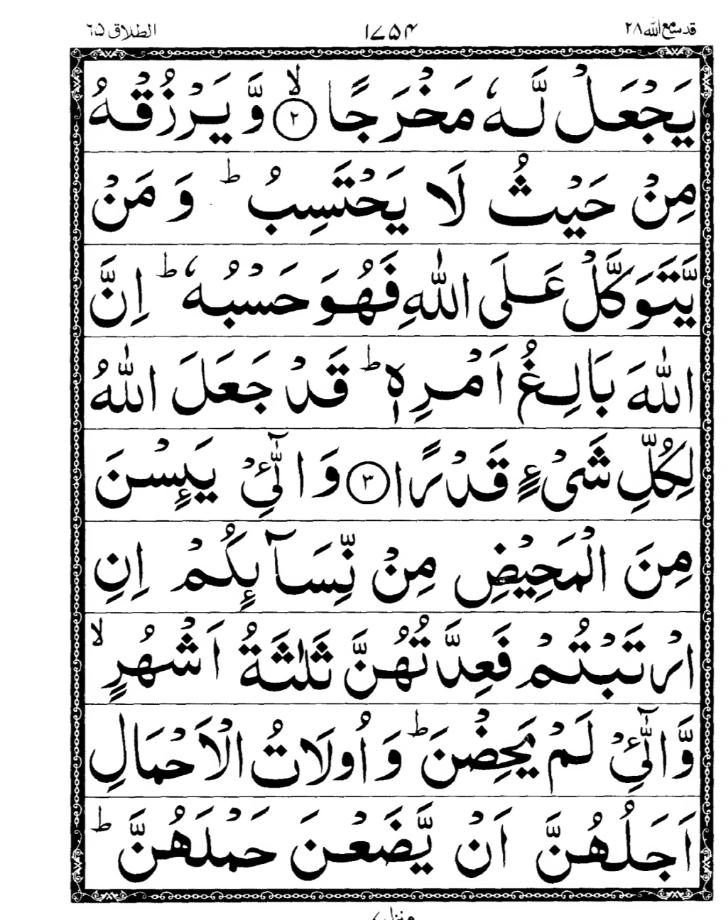 قد سمع الله ٢٨ ١٧٥٤ الطلاق ٦٥
يَجْعَلْ لَّهٗ مَخْرَجًا ۙ﴿۲﴾ وَّ يَرْزُقْهُ
مِنْ حَيْثُ لَا يَحْتَسِبُ ؕ وَ مَنْ
يَّتَوَكَّلْ عَلَى اللّٰهِ فَهُوَ حَسْبُهٗ ؕ اِنَّ
اللّٰهَ بَالِغُ اَمْرِهٖ ؕ قَدْ جَعَلَ اللّٰهُ
لِكُلِّ شَیْءٍ قَدْرًا ﴿۳﴾ وَ الّٰٓـِٔیْ يَىِٕسْنَ
مِنَ الْمَحِيْضِ مِنْ نِّسَآىِٕكُمْ اِنِ
ارْتَبْتُمْ فَعِدَّتُهُنَّ ثَلٰثَةُ اَشْهُرٍ ۙ
وَّ الّٰٓـِٔیْ لَمْ يَحِضْنَ ؕ وَ اُولَاتُ الْاَحْمَالِ
اَجَلُهُنَّ اَنْ يَّضَعْنَ حَمْلَهُنَّ ؕ
منزل ٧